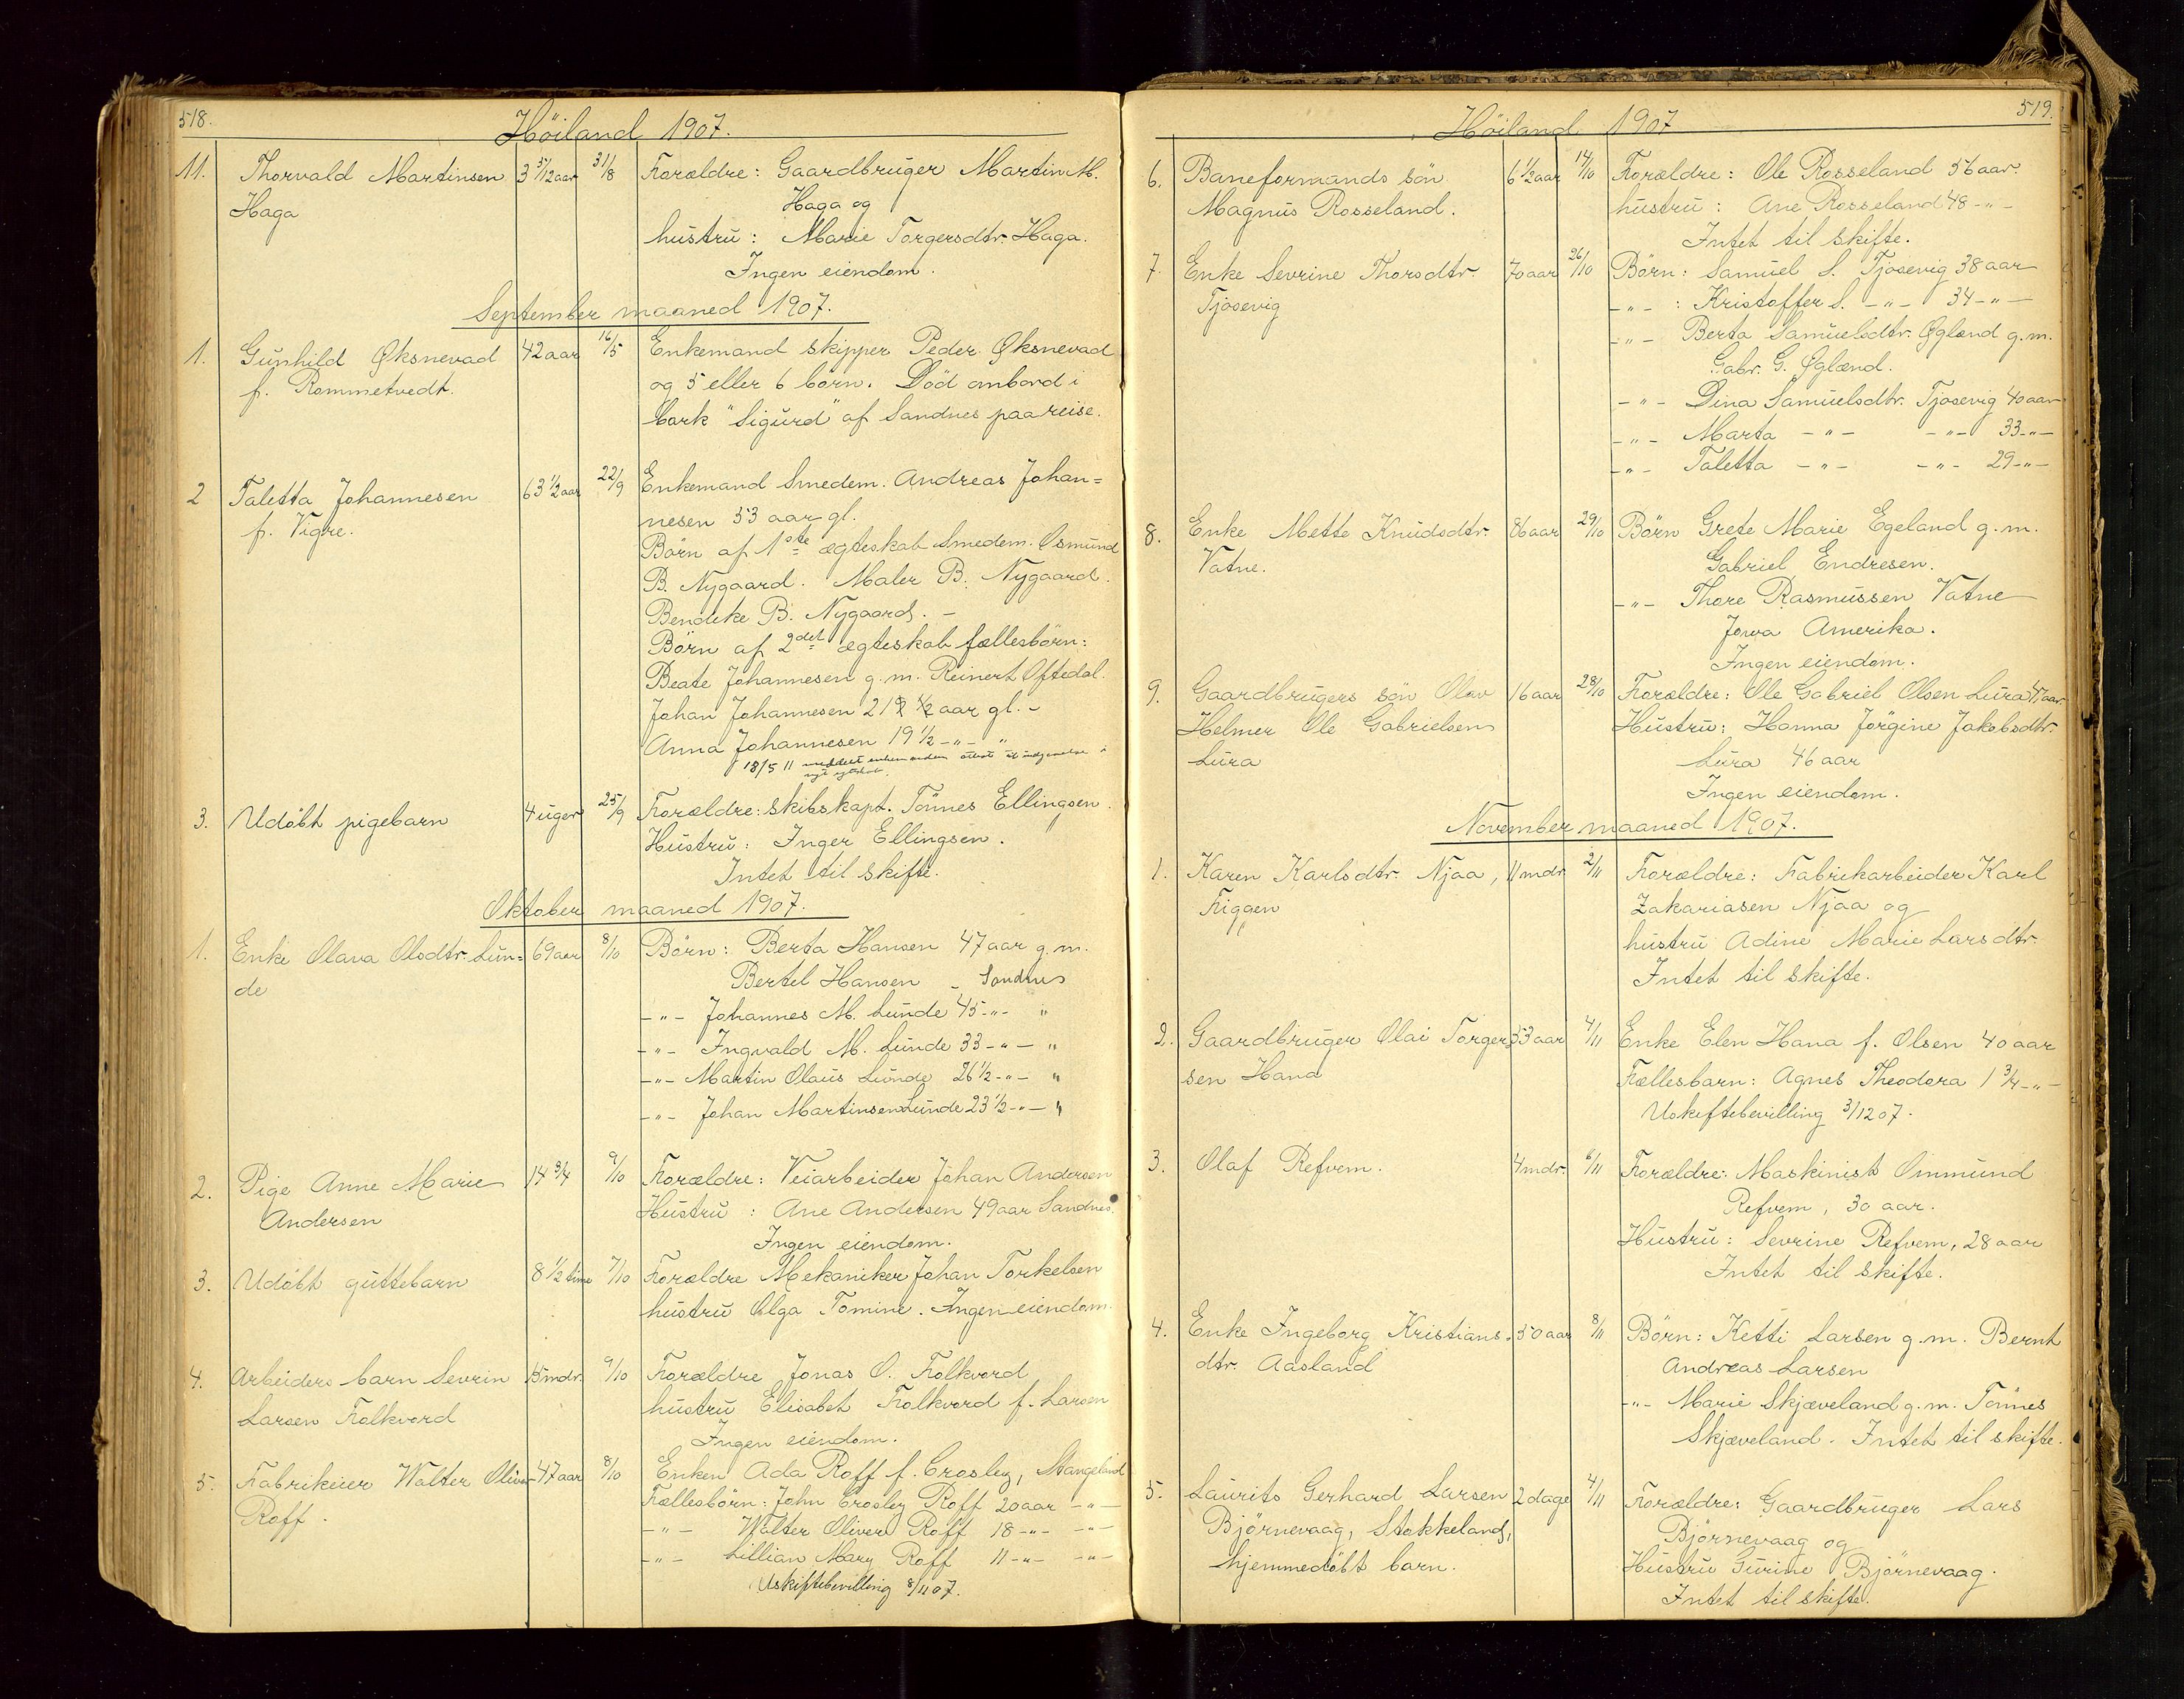 518.
Höiland 1907.
11. Thorvald Martinsen 3 5/12 aar 31/8 Forældre: Gaardbruger Martin M.
Haga Haga og
hustru: Marie Torgersdtr. Haga.
Ingen eiendom.
September maaned 1907.
1. Gunhild Øksnevad 42 aar 16/5 Enkemand skipper Peder Øksnevad
f. Rommetvedt. og 5 eller 6 børn. Död ombord i
bark "Sigurd" af Sandnes paa reise.
2 Taletta Johannesen 63 1/2 aar 22/9 Enkemand Smedem. Andreas Johan=
f. Vigre. nesen 53 aar gl.
Börn af 1ste ægteskab Smedem. Osmund
B. Nygaard. Maler B. Nygaard.
Bendike B. Nygaard. -
Börn af 2det ægteskab fællesbörn:
Beate Johannesen g. m. Reinert Oftedal.
Johan Johannesen 21 1/2 aar gl. -
Anna Johannesen 19 1/2 -"- "
18/5 11 meddelt enkemanden attest til indgaaelse a
nyt egteskab.
3. Udöbt pigebarn 4 uger 25/9 Forældre: skibskapt. Tönnes Ellingsen.
Hustru: Inger Ellingsen.
Intet til skifte.
Oktober maaned 1907.
1. Enke Olava Olsdtr. Lun= 69 aar 8/10 Börn: Berta Hansen 47 aar g. m.
de Bertel Hansen - Sandnes
-"- Johannes M. Lunde 45 -"- "
-"- Ingvald M. Lunde 33 -"- "
-"- Martin Olaus Lunde 26 1/2 -"- "
-"- Johan Martinsen Lunde 23 1/2 -"- "
2. Pige Anne Marie 14 3/4 9/10 Forældre: Veiarbeider Johan Andersen
Andersen Hustru: Ane Andersen 49 aar Sandnes.
Ingen eiendom.
3. Udöbt guttebarn 8 1/2 time 7/10 Forældre Mekaniker Johan Torkelsen
hustru Olga Tomine. Ingen eiendom.
4. Arbeiders barn Sevrin 15 mdr. 9/10 Forældre Jonas O. Folkvord
Larsen Folkvord hustru Elisabet Folkvord f. Larsen
Ingen eiendom.
5. Fabrikeier Walter Oliver 47 aar 8/10 Enken Ada Roff f. Crosley, Stangeland
Roff. Fællesbörn: John Crosley Roff 20 aar -"-
-"- Walter Oliver Roff 18 -"- -"-
-"- Lillian Mary Roff 11 -"- -"-
Uskiftebevilling 8/11 07.
519.
Höiland 1907
6. Baneformands sön 6 1/2 aar 14/10 Forældre: Ole Rosseland 56 aar.
Magnus Rosseland. hustru: Ane Rosseland 48 -"-
Intet til skifte.
7. Enke Sevrine Thorsdtr. 70 aar 26/10 Börn: Samuel S. Tjösevig 38 aar
Tjösevig -"- : Kristoffer S. -"- 34 -"-
-"- Berta Samuelsdtr. Öglænd g. m.
Gabr. G. Öglænd.
-"- Dina Samuelsdtr. Tjösevig 40 aar
-"- Marta -"- -"- 33 -"-
-"- Taletta -"- -"- 29 -"-
8. Enke Mette Knudsdtr. 86 aar 29/10 Börn Grete Marie Egeland g. m.
Vatne. Gabriel Endresen.
-"- Thore Rasmussen Vatne
Jowa Amerika.
Ingen eiendom.
9. Gaardbrugers sön Olav 16 aar 28/10 Forældre: Ole Gabriel Olsen Lura 47 aar
Helmer Ole Gabrielsen Hustru: Hanna Jörgine Jakobsdtr.
Lura Lura 46 aar
Ingen eiendom.
November maaned 1907.
1. Karen Karlsdtr. Njaa, 11 mdr. 2/11 Forældre: Fabrikarbeider Karl
Figgen Zakariasen Njaa og
hustru Adine Marie Larsdtr.
Intet til skifte.
2. Gaardbruger Olai Torger 53 aar 4/11 Enke Elen Hana f. Olsen 40 aar
sen Hana Fællesbarn: Agnes Theodora 1 3/4 -"-
Uskiftebevilling 3/12 07.
3. Olaf Refvem. 4 mdr. 6/11 Forældre: Maskinist Ommund
Refvem, 30 aar.
Hustru: Sevrine Refvem, 28 aar
Intet til skifte.
4. Enke Ingeborg Kristians- 50 aar 8/11 Börn: Ketti Larsen g. m. Bernt
dtr. Aasland Andreas Larsen
-"- Marie Skjæveland g. m. Tönnes
Skjæveland. Intet til skifte.
5. Laurits Gerhard Larsen 2 dage 4/11 Forældre: Gaardbruger Lars
Björnevaag, Stokkeland, Björnevaag og
hjemmedöbt barn. Hustru Gurine Björnevaag.
Intet til skifte.